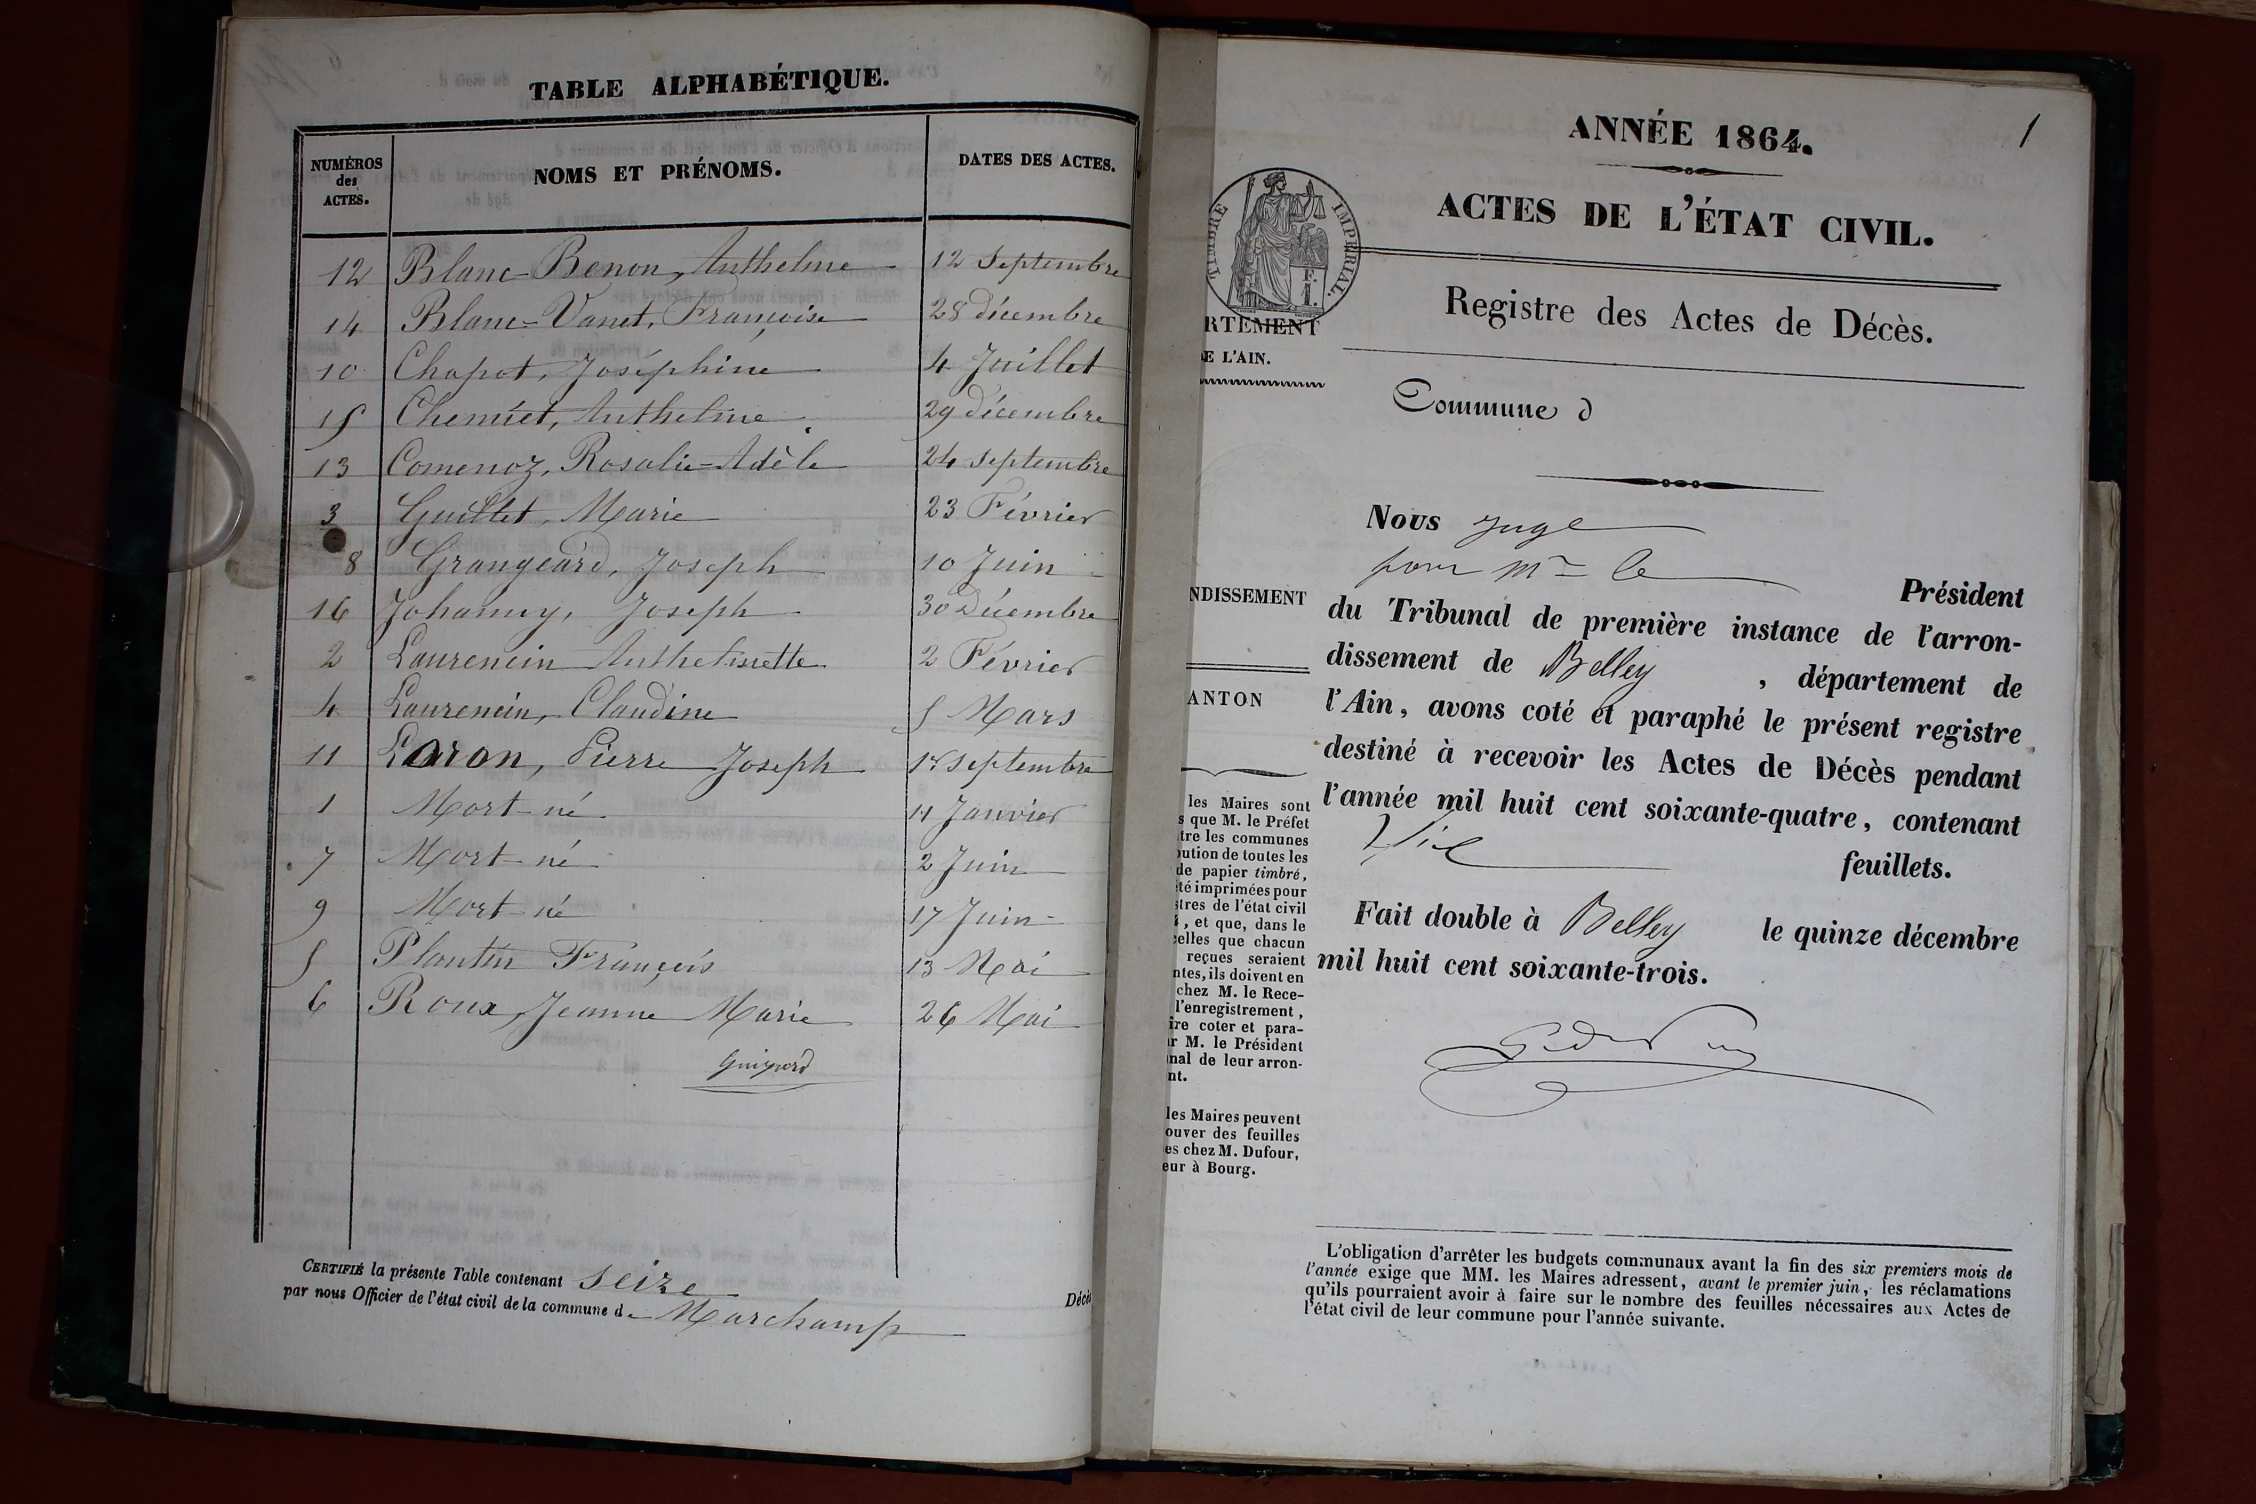 TABLE ALPHABÉTIQUE.
NUMÉROS des ACTES. NOMS ET PRÉNOMS. DATES DES ACTES.
12 Blanc-Benon, Anthelme 12 Septembre
14 Blanc-Vanet, Françoise 28 décembre
10 Chapot, Joséphine 4 Juillet
15 Chemiet, Anthelme 29 décembre
13 Comenoz, Rosalie-Adèle 24 septembre
3 Guillet, Marie 23 Février
8 Grangeard, Joseph 10 Juin
16 Johanny, Joseph 30 Décembre
2 Laurencin Anthelmette 2 Février
4 Laurencin, Claudine 5 Mars
11 Laron, Pierre Joseph septembre
1 Mort-né 11 Janvier
7 Mort-né 2 Juin
9 Mort-né 17 Juin
5 Plantin François 13 Mai
6 Roux, Jeanne Marie 26 Mai
Guignard
CERTIFIÉ la présente Table contenant seize Décè
par nous Officier de l'état civil de la commune de Marchamp
1
ANNÉE 1864.
ACTES DE L'ÉTAT CIVIL.
TIMBRE IMPÉRIAL.
F.
1.
Registre des Actes de Décès.
RTEMENT
E L'AIN.
Commune d
Nous Juge
pour Mr le
Président
du Tribunal de première instance de l'arron-
dissement de Belley , département de
l'Ain, avons coté et paraphé le présent registre
destiné à recevoir les Actes de Décès pendant
l'année mil huit cent soixante-quatre, contenant
feuillets.
Fait double à Belley le quinze décembre
mil huit cent soixante-trois.
NDISSEMENT
ANTON
les Maires sont
s que M. le Préfet
tre les communes
ution de toutes les
de papier timbré,
té imprimées pour
stres de l'état civil
, et que, dans le
elles que chacun
reçues seraient
ntes, ils doivent en
chez M. le Rece-
l'enregistrement,
ire coter et para-
r M. le Président
nal de leur arron-
nt.
les Maires peuvent
ouver des feuilles
es chez M. Dufour,
eur à Bourg.
L'obligation d'arrêter les budgets communaux avant la fin des six premiers mois de
l'année exige que MM. les Maires adressent, avant le premier juin, les réclamations
qu'ils pourraient avoir à faire sur le nombre des feuilles nécessaires aux Actes de
l'état civil de leur commune pour l'année suivante.